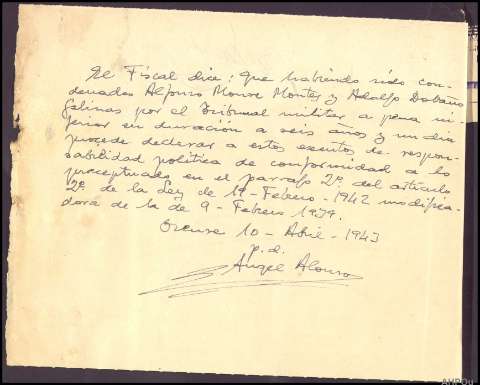 El Fiscal dice: Que habiendo sido con-
denados Alfonso Monse Montes y Adolfo Dobaño
Salinas por el Tribunal militar a pena in
ferior en duracion a seis años y un dia
procede declarar a estos exentos de respon-
sabilidad politica de conformidad a lo
preceptuado en el parrafo 2º del articulo
2º de la Ley de 19 - Febrero - 1942 modifica-
dora de la de 9 - Febrero 1939.
Orense 10 - Abril - 1943
p.d.
Angel Alonso
AHPOu